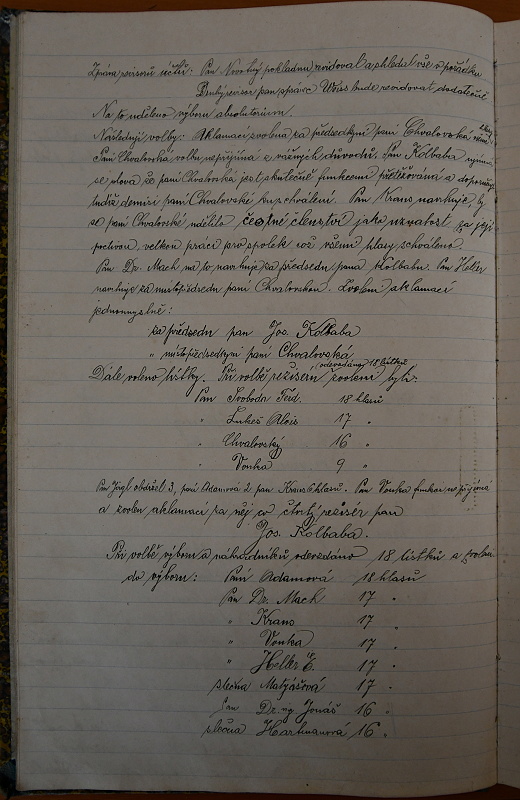 Zpráva revisorů účtů: Pan Novotný pokladnu revidoval a shledal vše v pořádku
Druhý revisor pan správce Weiss bude revidovat dodatečně
Na to uděleno výboru absolutorium.
Následují volby: Aklamací zvolena za předsedkyni paní Chvalovská
Paní Chvalovská volbu nepřijímá z vážných důvodů. Pan Kolbaba ujímá
se slova že paní Chvalovská jest skutečně funkcemi přetěžována a doporučuje
tudíž demisi paní Chvalovské ku schválení. Pan Kraus navrhuje, by
se paní Chvalovské udělilo čestné členství jako uznalost za její
poctivou, velkou práci pro spolek což všemi hlasy schváleno.
Pan Dr. Mach na to navrhuje za předsedu pana Kolbabu. Pan Heller
navrhuje za místopředsedu paní Chvalovskou. Zvoleni aklamací
jednomyslně:
za předsedu pan Jos. Kolbaba
" místopředsedkyni paní Chvalovská
Dále voleno lístky. Při volbě režisérů odevzdáno 18 lístků zvoleni byli:
Pan Svoboda Ferd. 18 hlasů
" Lukeš Alois 17 "
" Chvalovský 16 "
" Vonka 9 "
Pan Jágl obdržel 3, paní Adamová 2 pan Kraus 6 hlasů. Pan Vonka funkci nepřijímá
a zvolen aklamací za něj co čtvrtý režiser pan
Jos. Kolbaba.
Při volbě výboru a náhradníků odevzdáno 18 lístků a zvoleni
do výboru: Paní Adamová 18 hlasů
Pan Dr. Mach 17 "
" Kraus 17 "
" Vonka 17 "
" Heller Č. 17 "
slečna Matyášová 17 "
Pan Dr. Jonáš 16 "
slečna Hartmanová 16 "